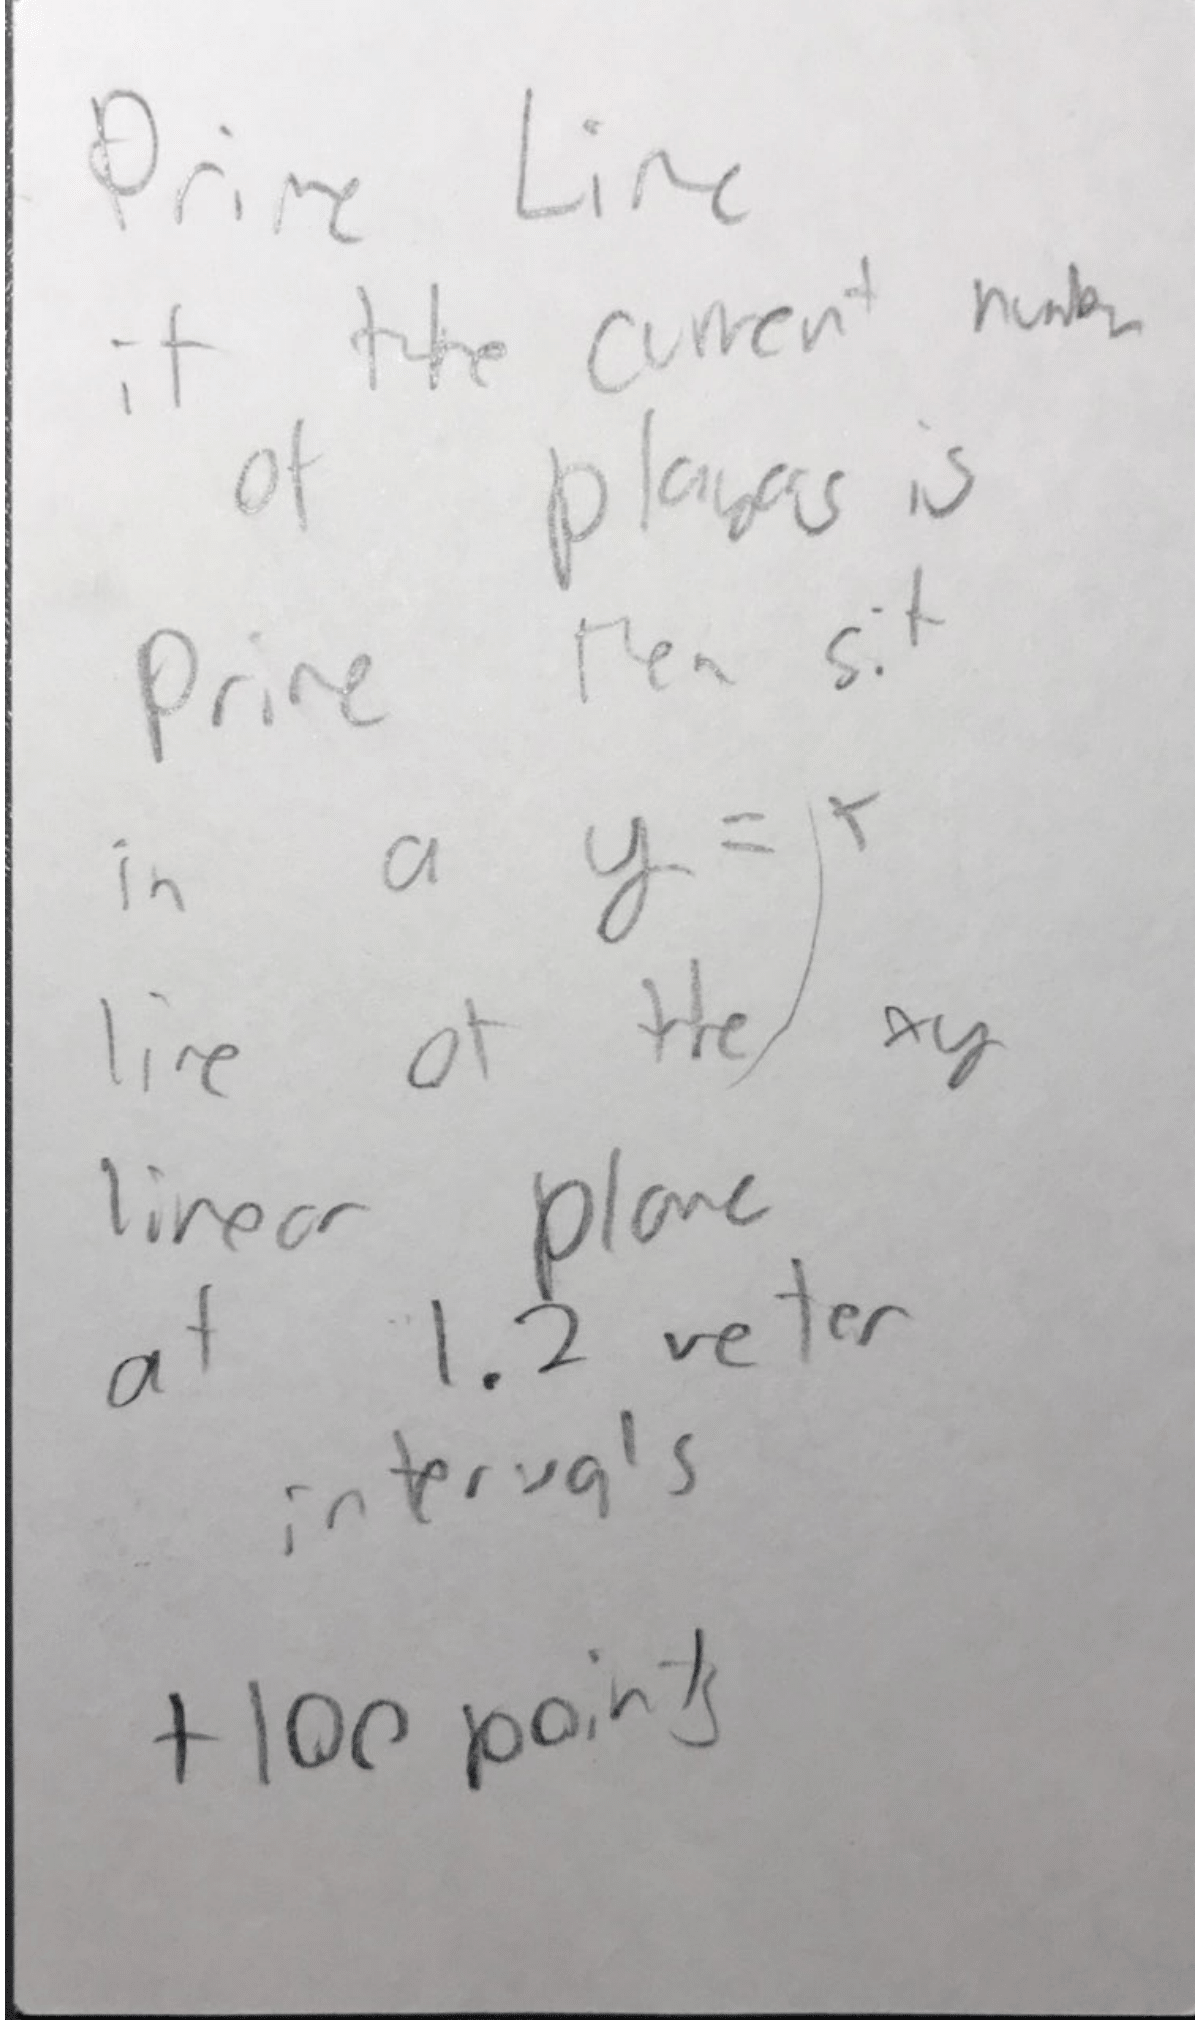 Prime Line
if the current number
of players is
Prime then sit
in a y = x
line of the xy
linear plane
at 1.2 meter
interval's
+100 points